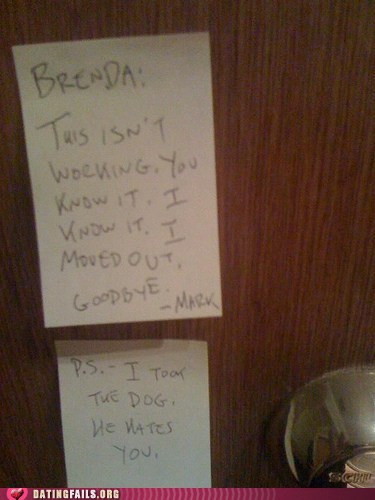 BRENDA:
THIS ISN'T
WORKING. YOU
KNOW IT. I
KNOW IT. I
MOVED OUT.
GOODBYE.
-MARK
P.S.- I TOOK
THE DOG.
HE HATES
YOU.
DATINGFAILS.ORG